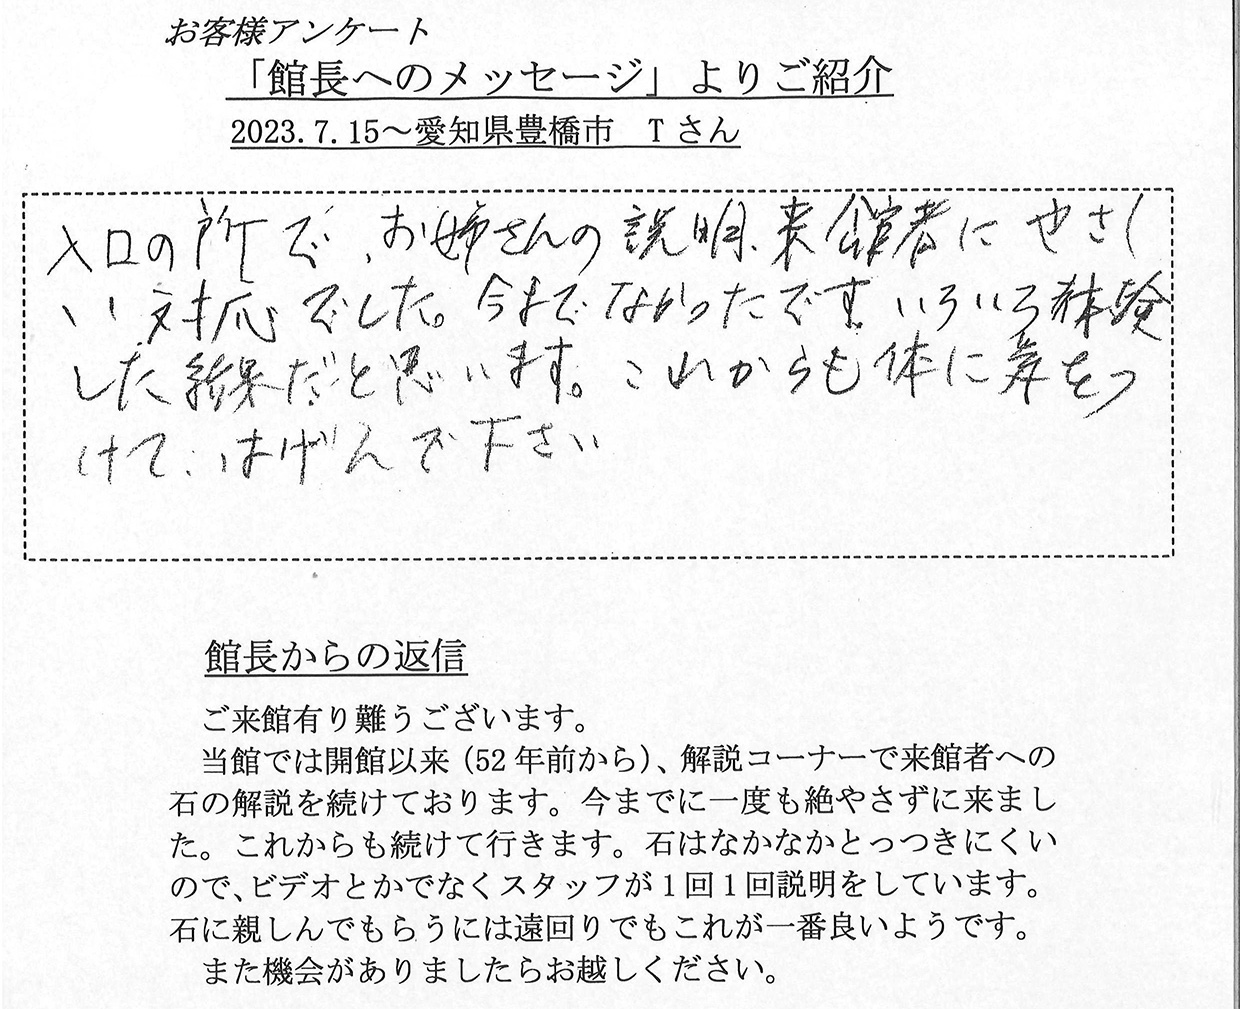 お客様アンケート
「館長へのメッセージ」よりご紹介
2023.7.15～愛知県豊橋市　Tさん
入口の所で、お姉さんの説明、来館者にやさし
い対応でした。今までなかったです。いろいろ体験
した結果だと思います。これからも体に気をつ
けて、はげんで下さい
館長からの返信
ご来館有り難うございます。
当館では開館以来（52年前から）、解説コーナーで来館者への
石の解説を続けております。今までに一度も絶やさずに来まし
た。これからも続けて行きます。石はなかなかとっつきにくい
ので、ビデオとかでなくスタッフが１回１回説明をしています。
石に親しんでもらうには遠回りでもこれが一番良いようです。
また機会がありましたらお越しください。